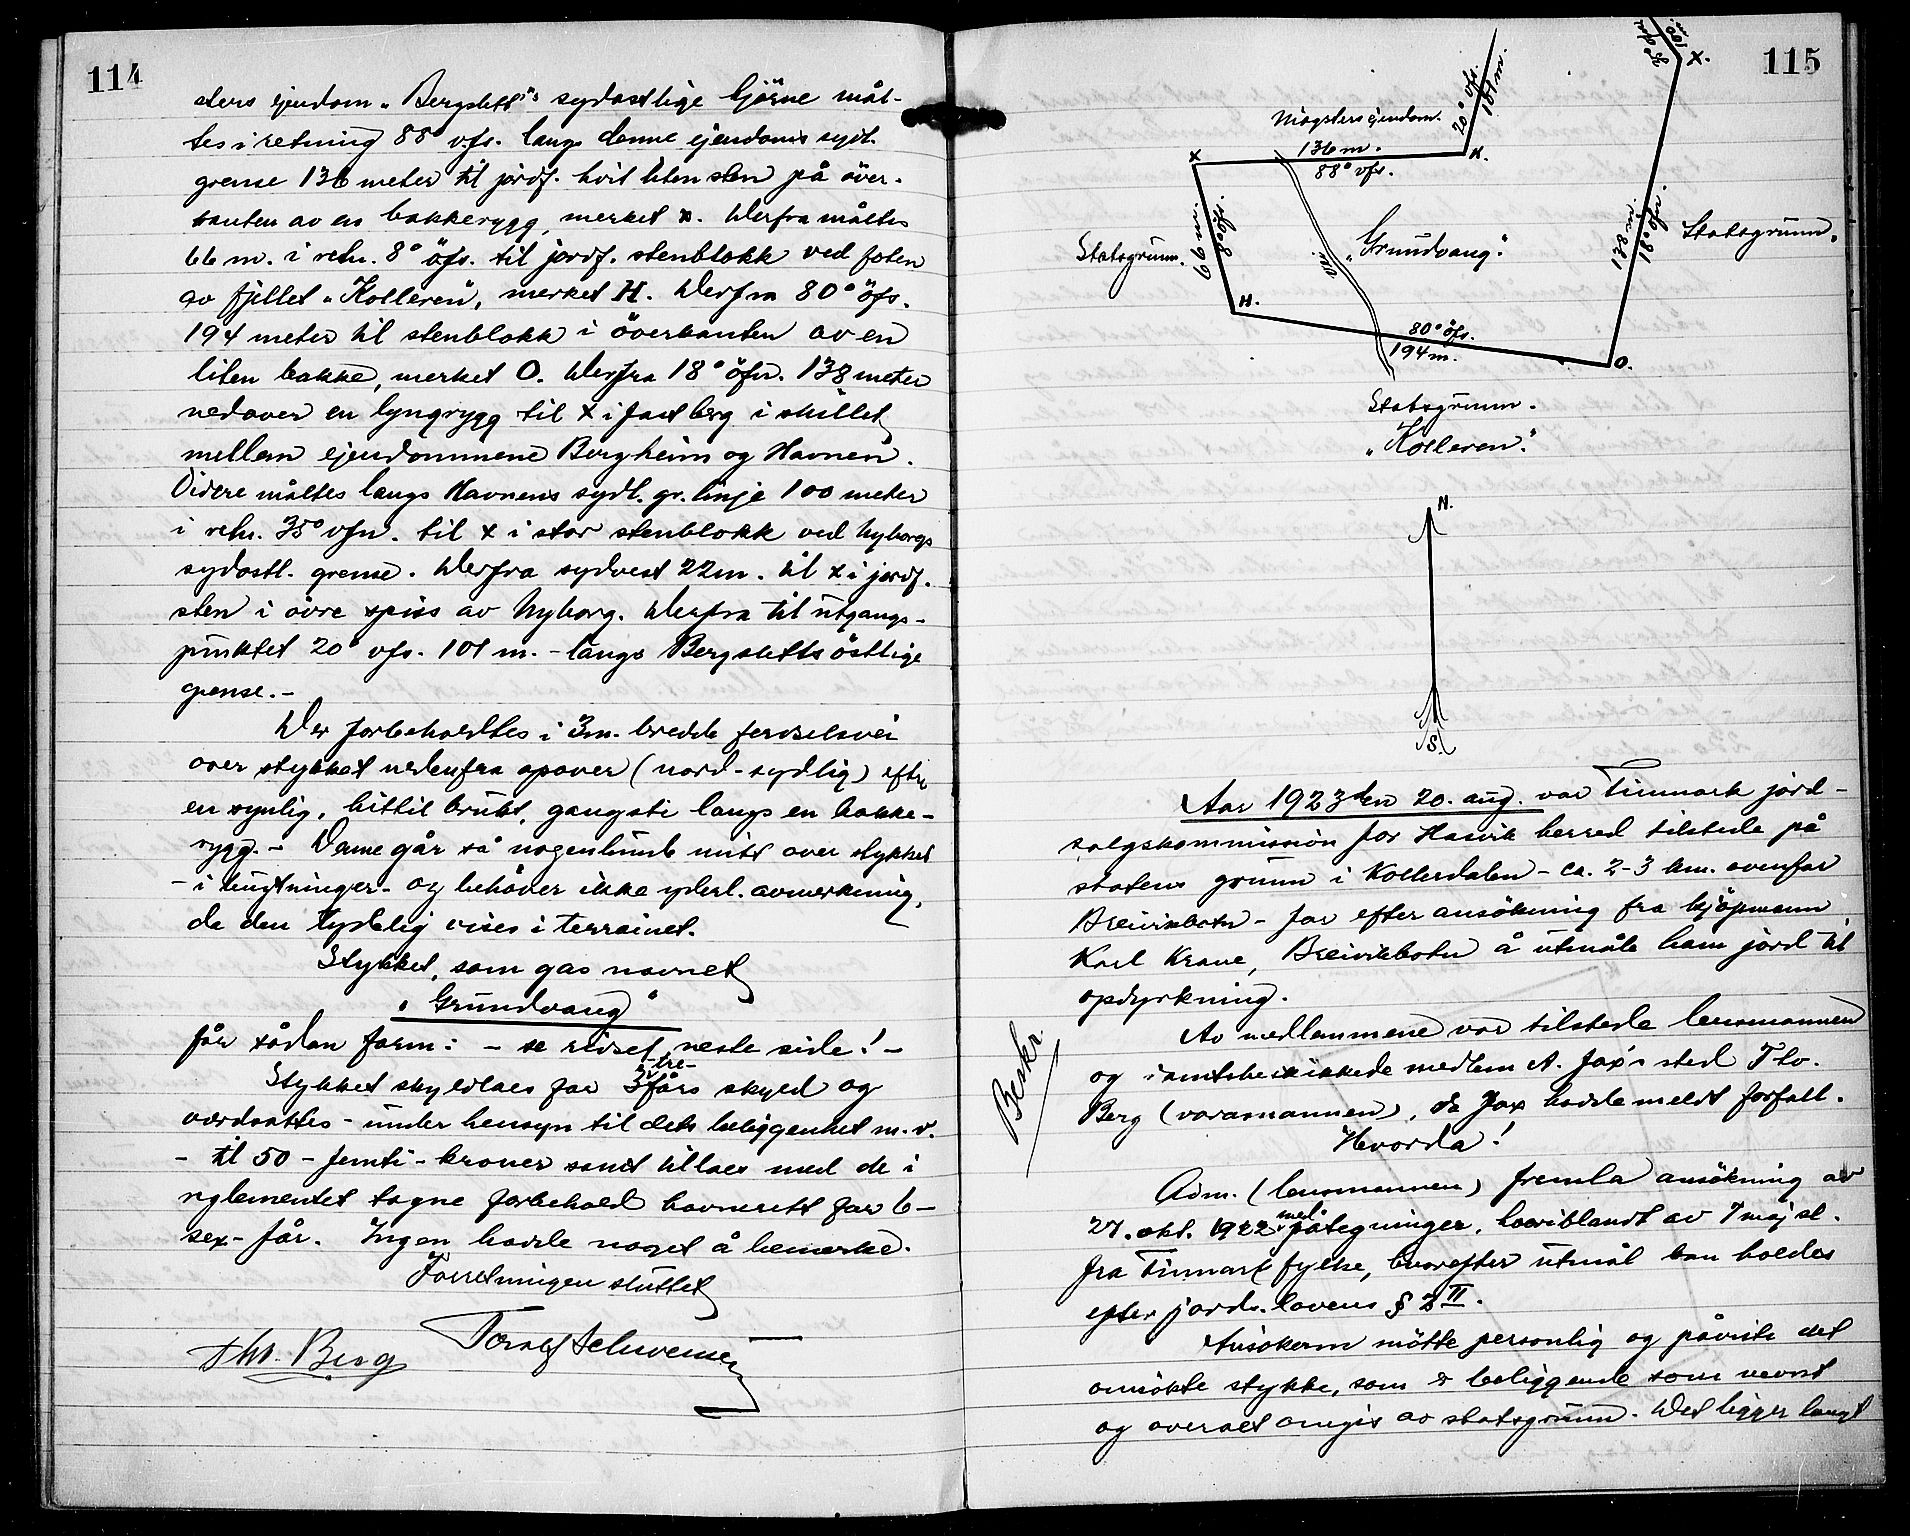 114
sters ejendom „Bergslett"s sydostlige hjörne mål-
tes i retning 88° v.f.s. langs denne ejendoms sydl.
grense 136 meter til jordf. hvit liten sten på över-
kanten av en bakkerygg, merket x. Derfra måltes
66 m. i retn. 8° öfs. til jordf. stenblokk ved foten
av fjellet „Kolleren", merket H. Derfra 80° öfs.
194 meter til stenblokk i överkanten av en
liten bakke, merket O. Derfra 18° öfn. 138 meter
nedover en lyngrygg til x i fast berg i skillet
mellem ejendommene Bergheim og Havnen.
Videre måltes langs Havnens sydl. gr. linje 100 meter
i retn. 35° vfn. til x i stor stenblokk ved Nyborgs
sydostl. grense. Derfra sydvest 22 m. til x i jordf.
sten i övre spiss av Nyborg. Derfra til utgangs-
punktet 20° vfs. 101 m. - langs Bergsletts östlige
grense. -
Der forbeholdtes i 3 m. bredde ferdselsvei
over stykket nedenfra opover (nord-sydlig) efter
en synlig, hittil brukt, gangsti langs en bakke-
rygg. - Denne går så nogenlunde mitt over stykket
- i bugtninger - og behöver ikke yderl. avmerkning,
da den tydelig vises i terrainet.
Stykket, som gas navnet
„Grundvang"
får sådan form: - se risset neste side! -
Stykket skyldlaes for 3 -tre- förs skyld og
værdsattes - under hensyn til dets beliggenhet m.v.
- til 50 - femti - kroner samt tillaes med de i
reglementet tagne forbehold havnerett for 6 -
sex - får. Ingen hadde noget å bemerke.
Forretningen sluttet
Tho. Berg
115
x.
100 m.
Mögsters ejendom.
20° vfs.
101 m.
x
136 m.
88° vfs.
H.
Statsgrunn.
66 m.
8° öfs.
vei
„Grundvang".
138 m.
18° öfn.
Statsgrunn.
H.
80° öfs.
194 m.
O.
Statsgrunn.
„Kolleren".
N.
S.
Aar 1923 den 20. aug. var Finmark jord-
salgskommission for Hasvik herred tilstede på
statens grunn i Kollerdalen - ca. 2-3 km. ovenfor
Breivikbotn - for efter ansökning fra kjöpmann
Karl Krane, Breivikbotn å utmåle ham jord til
opdyrkning.
Av medlemmene var tilstede lensmannen
og i amtsbeskikkede medlem A. Jax's sted Tho.
Berg (varamannen), da Jax hadde meldt forfall.
Beskr.
Hvorda!
Adm. (lensmannen) fremla ansökning av
27. okt. 1922 med påtegninger, hvoriblandt av 7 maj sl.
fra Finmark fylke, hvorefter utmål kan holdes
efter jords.lovens § 2 II.
Ansökeren mötte personlig og påviste det
ansökte stykke, som er beliggende som nevnt
og overalt omgis av statsgrunn. Det ligger langt